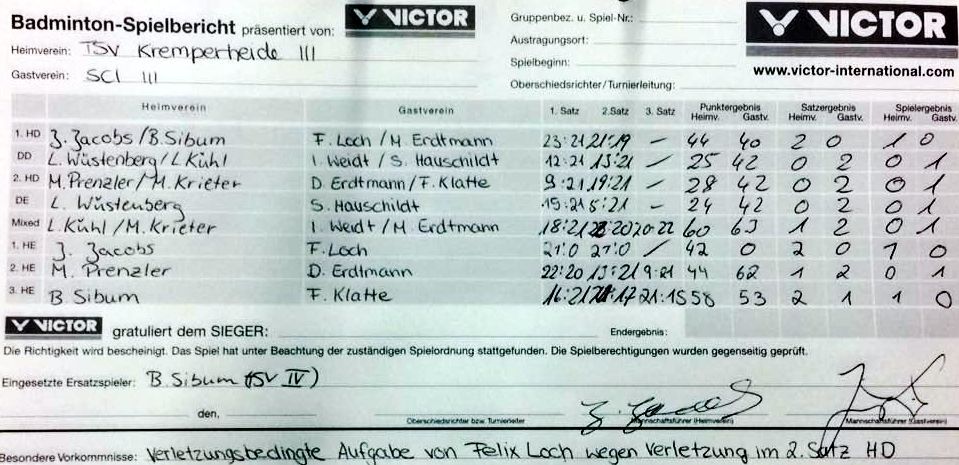 Badminton-Spielbericht präsentiert von: VICTOR Gruppenbez. u. Spiel-Nr.: VICTOR
Heimverein: TSV Kremperheide III Austragungsort:
Gastverein: SCI III Spielbeginn:
Oberschiedsrichter/Turnierleitung: www.victor-international.com
Heimverein Gastverein 1. Satz 2. Satz 3. Satz Punktergebnis Heimv. Gastv. Satzergebnis Heimv. Gastv. Spielergebnis Heimv. Gastv.
1. HD J. Jacobs/B. Sibum F. Loch / M. Erdtmann 23:21 21:19 - 44 40 2 0 1 0
DD L. Wüstenberg/L. Kühl I. Weidt / S. Hauschildt 12:21 13:21 - 25 42 0 2 0 1
2. HD M. Prenzler/M. Krieter D. Erdtmann / F. Klatte 9:21 19:21 - 28 42 0 2 0 1
DE L. Wüstenberg S. Hauschildt 15:21 21 - 24 42 0 2 0 1
Mixed L. Kühl / M. Krieter I. Weidt / M. Erdtmann 18:21 :20 20:22 60 63 1 2 0 1
1. HE J. Jacobs F. Loch 21:0 21:0 / 42 0 2 0 1 0
2. HE M. Prenzler D. Erdtmann 22:20 13:21 9:21 44 62 1 2 0 1
3. HE B. Sibum F. Klatte 16:21 21:17 21:15 58 53 2 1 1 0
VICTOR gratuliert dem SIEGER: Endergebnis:
Die Richtigkeit wird bescheinigt. Das Spiel hat unter Beachtung der zuständigen Spielordnung stattgefunden. Die Spielberechtigungen wurden gegenseitig geprüft.
Eingesetzte Ersatzspieler: B. Sibum (TSV IV)
den, J. Jacobs
Oberschiedsrichter bzw. Turnierleiter Mannschaftsführer (Heimverein) Mannschaftsführer (Gastverein)
Besondere Vorkommnisse: Verletzungsbedingte Aufgabe von Felix Loch wegen Verletzung im 2. Satz HD